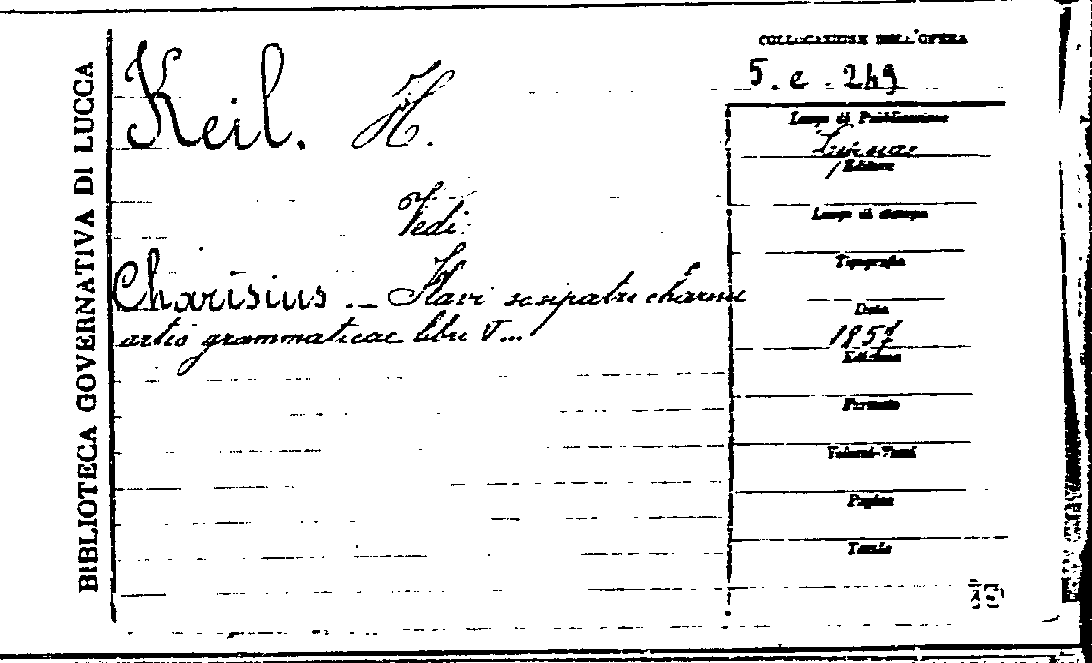 BIBLIOTECA GOVERNATIVA DI LUCCA
COLLOCAZIONE DELL'OPERA
5. e. 249
Keil. H.
Vedi:
Charisius — Flavi sosipatri charisii
artis grammaticae libri V...
Luogo di Pubblicazione
Editore
Luogo di stampa
Tipografia
Data
1857
Edizione
Formato
Volumi-Tomi
Pagine
Tavole